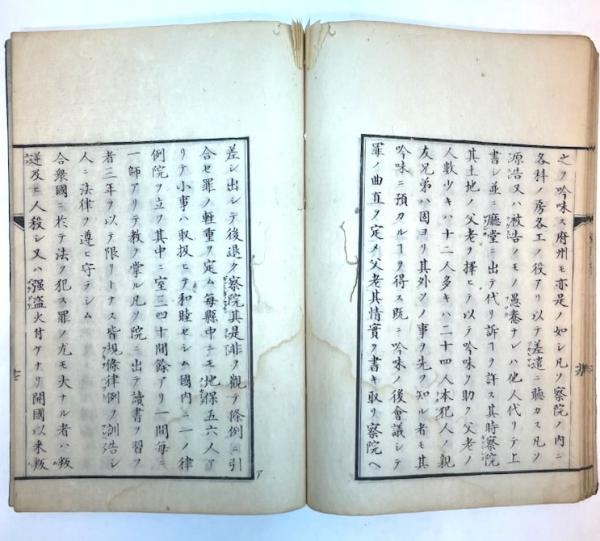 之ヲ吟味ス府州モ亦是ノ如シ凡ソ察院ノ内ニ
各科ノ房各工ノ役アリ以テ差遣ニ聽カス凡ソ
源告又ハ被告ノモノ愚憃ナレハ他人代リテ上
書シ並ニ廳堂ニ出テ代リ訴ヿヲ許ス其時察院
其土地ノ父老ヲ擇ヒテ以テ吟味ヲ助ク父老ノ
人數少キハ十二人多キハ二十四人本犯人ノ親
友兄弟ハ固ヨリ其外ソノ事ヲ先ツ知ル者モ其
吟味ニ預カルヿヲ得ス既ニ吟味ノ後會議シテ
罪ノ曲直ヲ定メ父老其情實ヲ書キ取リ察院ヘ
差シ出シテ後退ク察院其是非ヲ觀テ條例ニ引
合セ罪ノ輕重ヲ定ム每縣中ニモ地保五六人ア
リテ小事ハ取扱ヒヲ和睦セシム國內ニ一ノ律
例院ヲ立ク其中ニ室三四十間餘アリ一間每ニ
一師アリテ教ヲ掌ル凡ソ院ニ出テ讀書ヲ習フ
者三年ヲ以テ限リトナス皆規條律例ヲ訓告シ
人ニ法律ヲ遵ヒ守テシム
合衆國ニ於テ法ヲ犯ス罪ノ尤モ大ナル者ハ叛
逆及ニ人殺シ又ハ强盜火付ケナリ開國以來叛